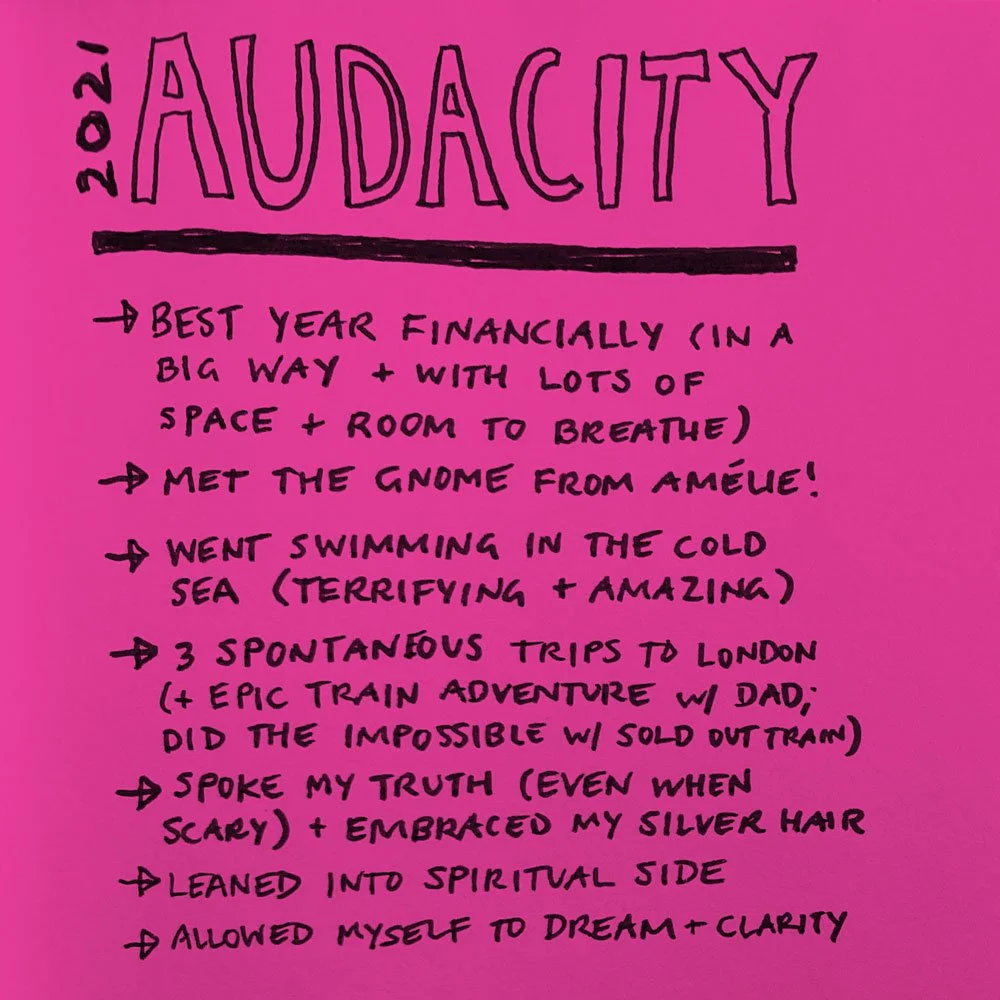 2021
AUDACITY
→ BEST YEAR FINANCIALLY (IN A
BIG WAY + WITH LOTS OF
SPACE + ROOM TO BREATHE)
→ MET THE GNOME FROM AMÉLIE!
→ WENT SWIMMING IN THE COLD
SEA (TERRIFYING + AMAZING)
→ 3 SPONTANEOUS TRIPS TO LONDON
(+ EPIC TRAIN ADVENTURE W/ DAD;
DID THE IMPOSSIBLE W/ SOLD OUT TRAIN)
→ SPOKE MY TRUTH (EVEN WHEN
SCARY) + EMBRACED MY SILVER HAIR
→ LEANED INTO SPIRITUAL SIDE
→ ALLOWED MYSELF TO DREAM + CLARITY